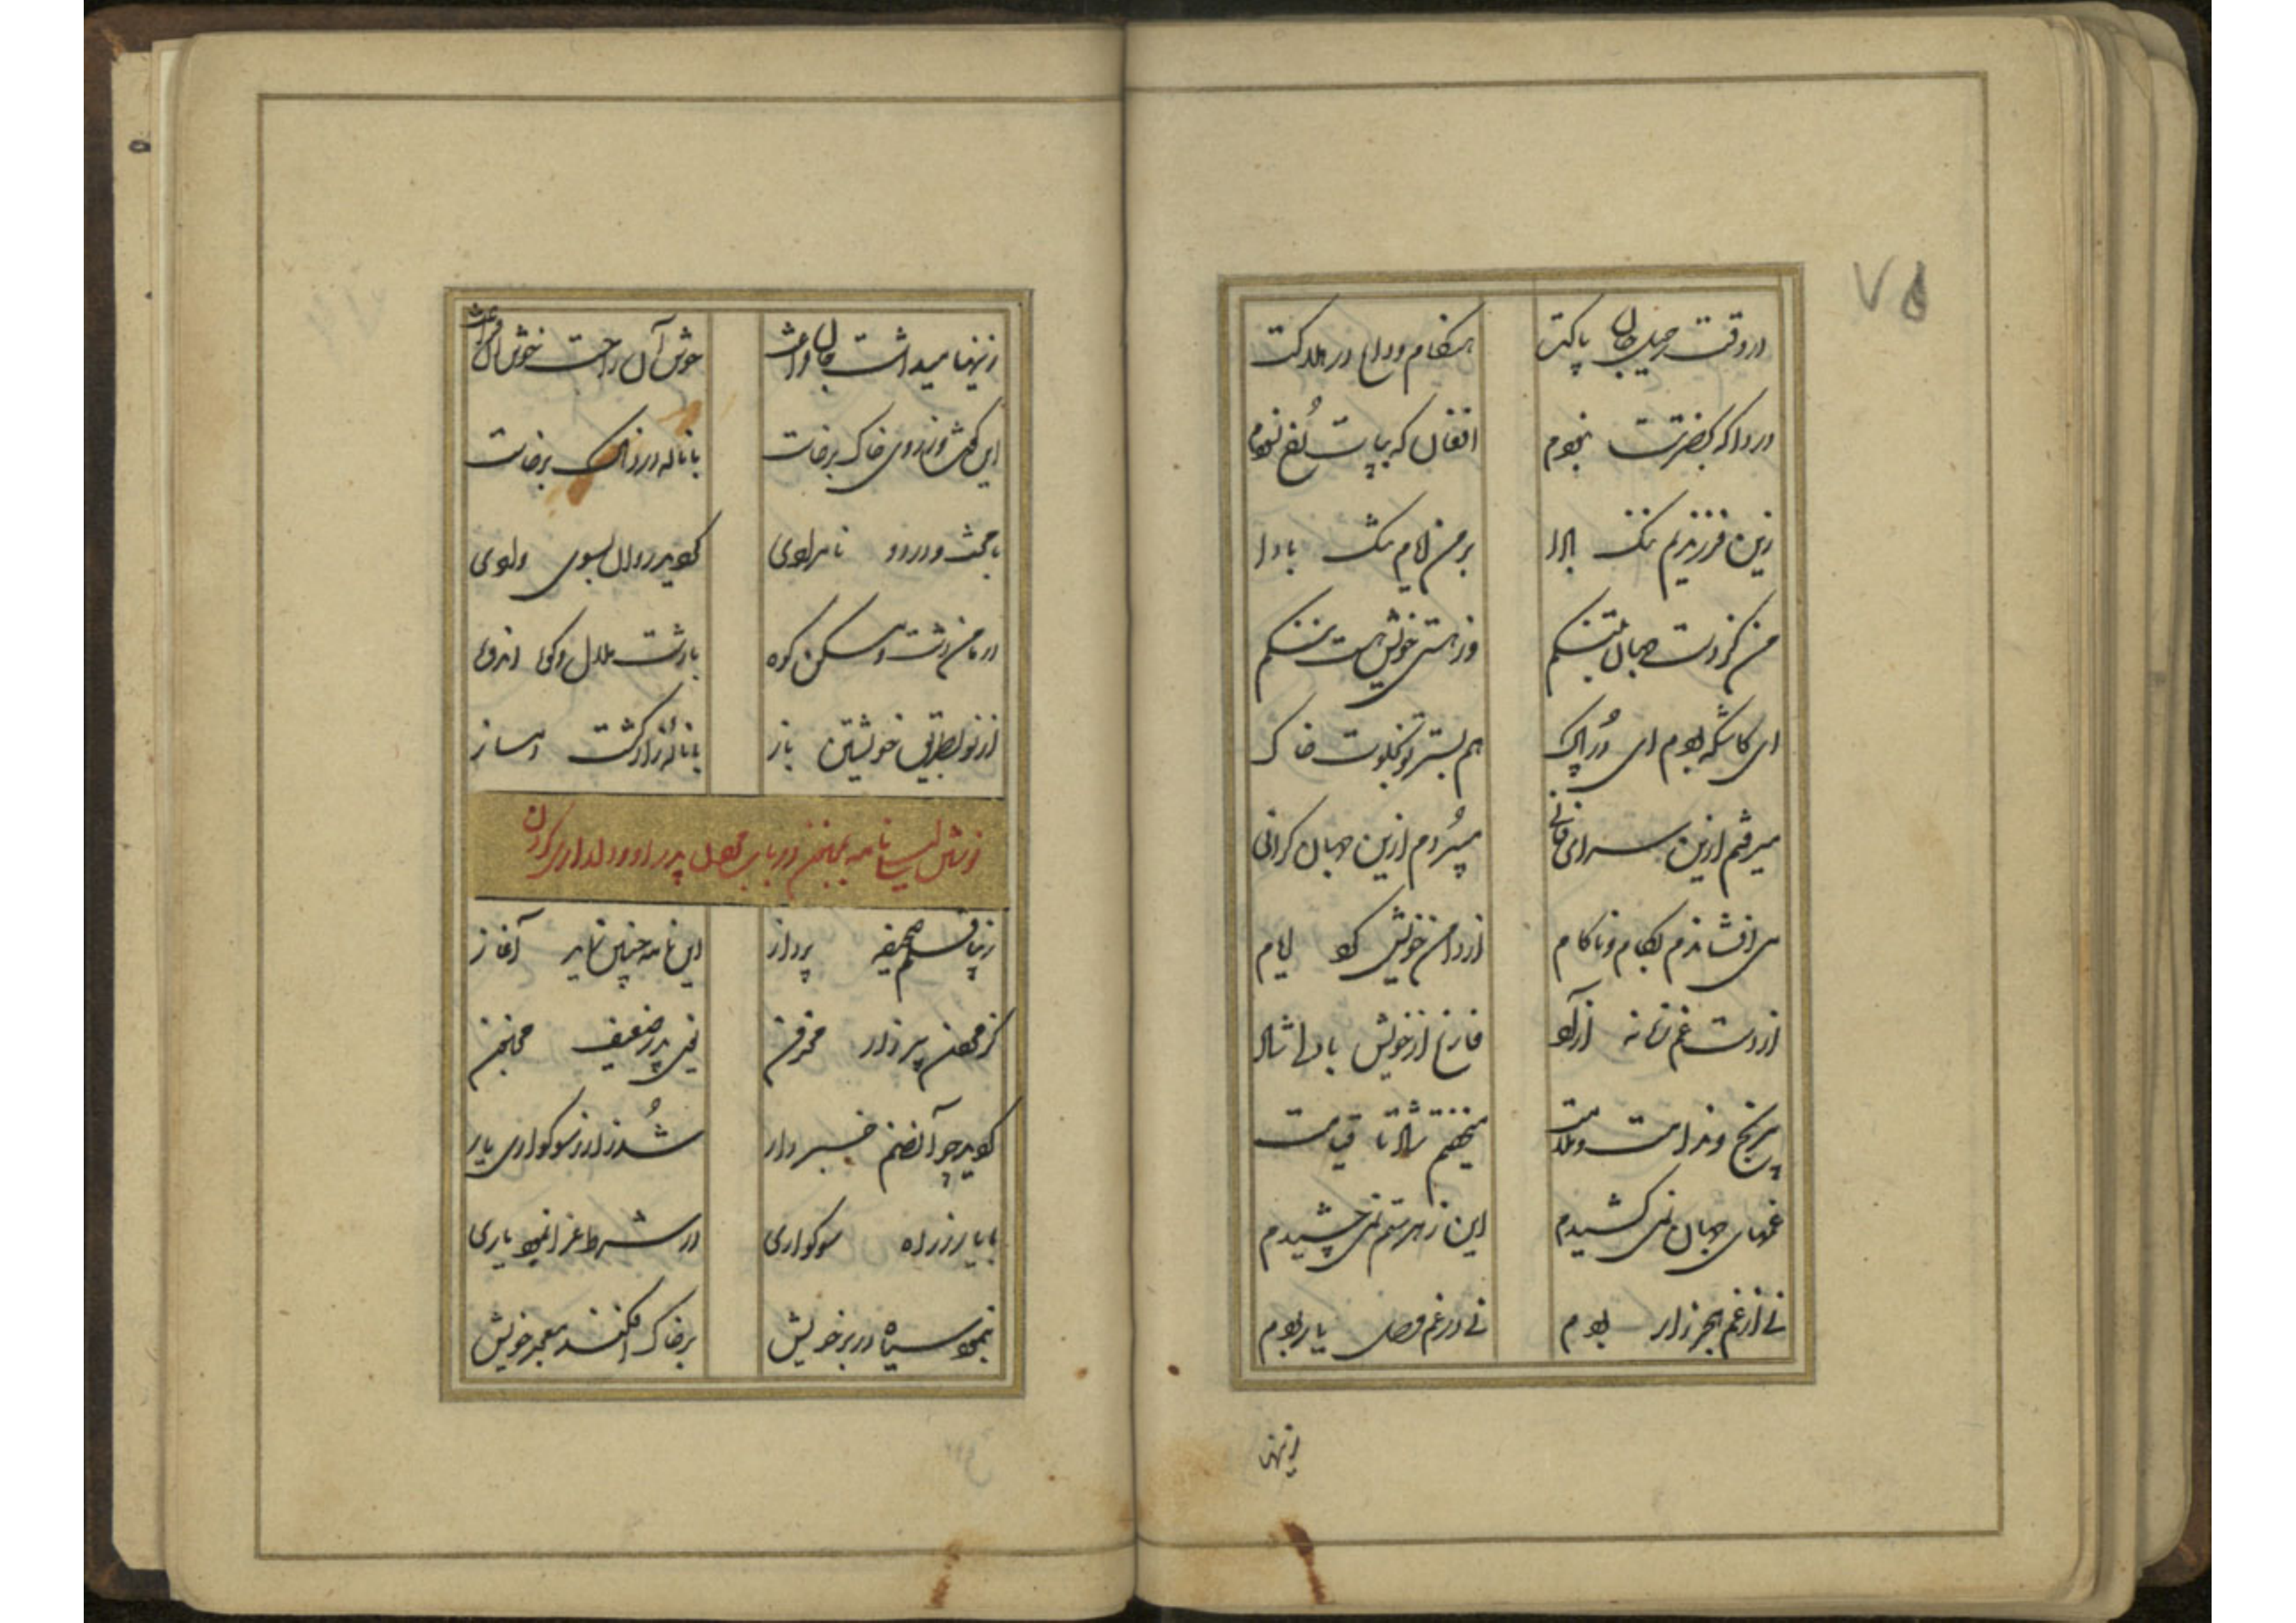 ۷۵
در وقت رحیل جان پاکت هنگام وداع در هلاکت
دردا که بحضرتت نبودم افغان که بپات رخ نسودم
زین فرزندیم ننگ بادا بر من نام ننگ بادا
من کز دست جهان به تنگم وز هستی خویش هست ننگم
ای کاش که بودم ای در پاک هم بستر تو بخلوت خاک
میرفتم ازین سرای فانی میبردم ازین جهان گرانی
می افشاندم بکام و ناکام از دامن خویش گرد ایام
از دست غم زمانه آزاد فارغ از خویش با دل شاد
بی رنج و ندامت و ملامت میخفتم شاد تا قیامت
غمهای جهان نمی کشیدم این زهر ستم نمی چشیدم
نی از غم هجر زار بودم نی در غم وصل یار بودم
زینها
زینها میداشت جان را خوش آن راحت خوش
این گفت و ز روی خاک برخاست با ناله دردناک برخاست
با محنت و درد و نامرادی گردید روان بسوی وادی
در دامن دشت و مسکن کوه با دشت ملال و کوه اندوه
از نو بطریق خویشتن باز با ناله زار گشت دمساز
نوشتن لیلی نامه بمجنون در باب پدر او و دلداری کردن
زیبا رقم صحیفه پرداز این نامه چنین نماید آغاز
کز مردن پیر زار محزون یعنی پدر ضعیف مجنون
گردید چو آن صنم خبردار شد زار ز سوگواری یار
با یار ز راه سوگواری در شرط عزا نمود یاری
بنمود سیاه در بر خویش بر خاک افکند معجر خویش